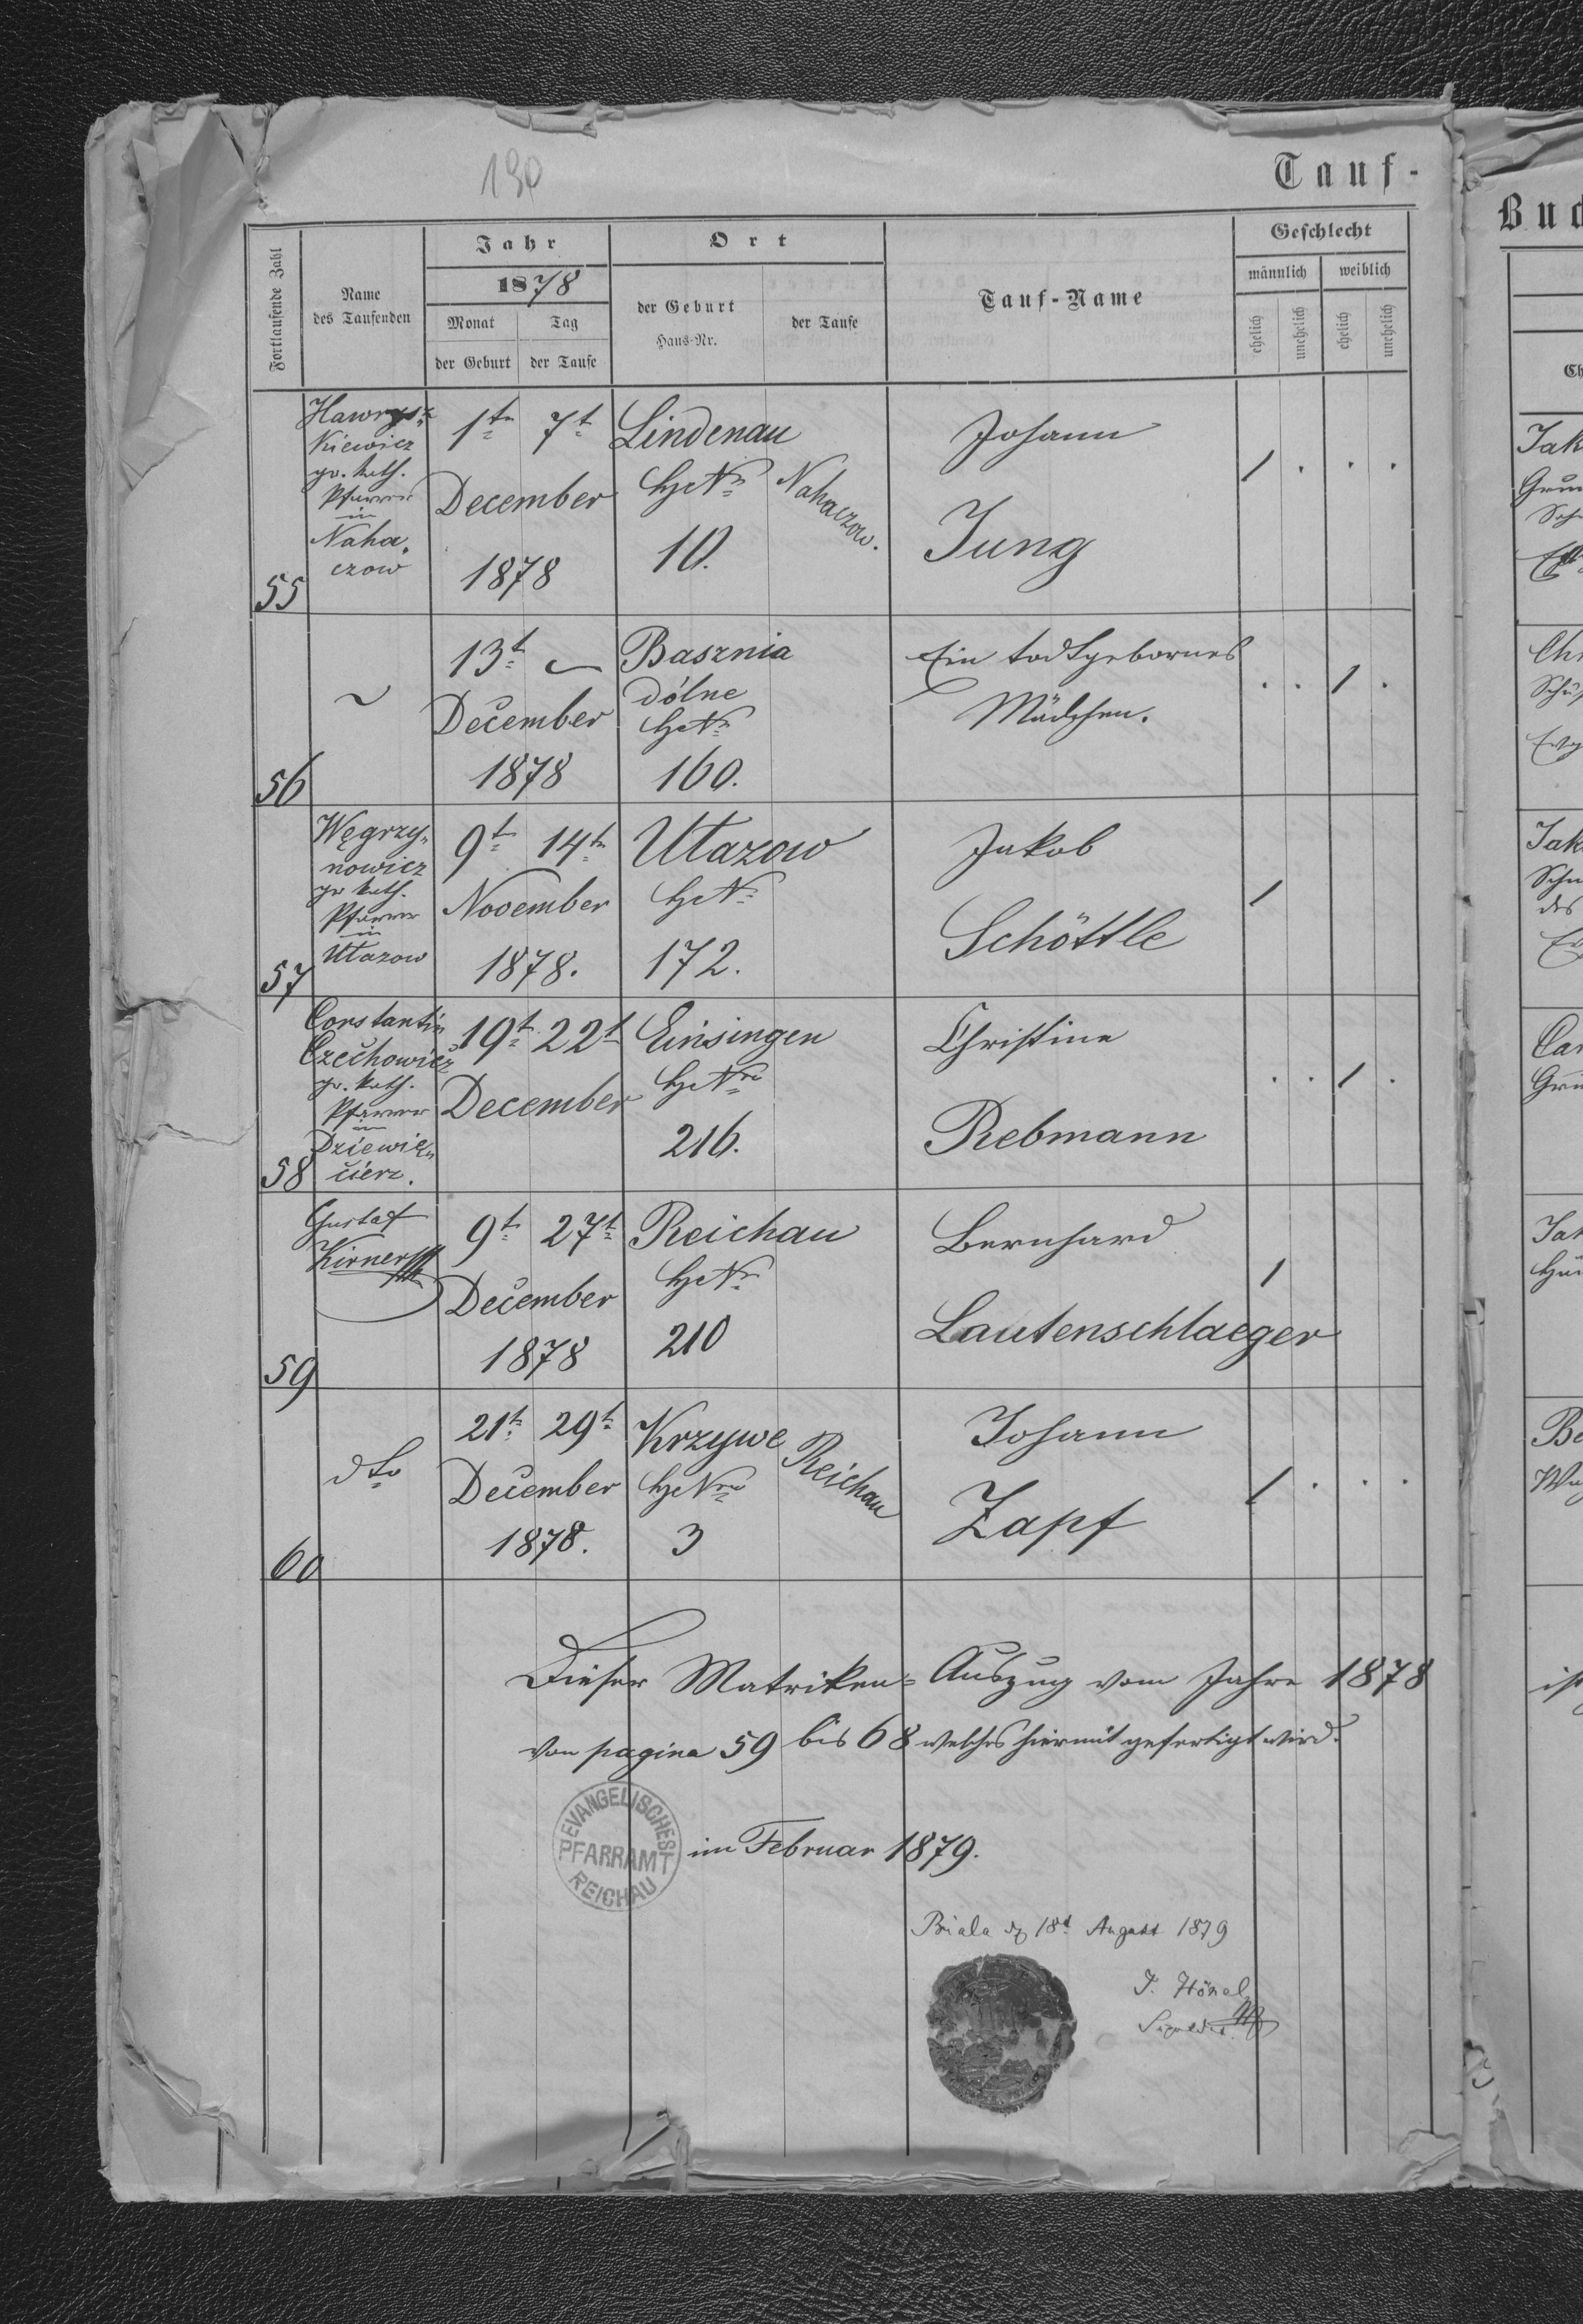 190
Tauf-
Fortlaufende Zahl
Name
des Taufenden
Jahr
1878
Monat Tag
der Geburt der Taufe
Ort
der Geburt
Haus-Nr.
der Taufe
Tauf-Name
Geschlecht
männlich weiblich
ehelich unehelich ehelich unehelich
55
Hawrysz„
Kiewicz
gr. kath.
Pfarrer
in
Naha„
czow
1te 7t
December
1878
Lindenau
HsNr
10.
Nahaczow.
Johann
Jung
1 . . .
56
~
13t ~
December
1878
Basznia
dólne
HsNr
160.
Ein todtgebornes
Mädchen.
. . 1 .
57
Węgrzy„
nowicz
gr kath.
Pfarrer
in
Utazow
9t 14t
November
1878.
Utazow
HsNr
172.
Jakob
Schöttle
1
58
Constantin
Czechowicz
gr. kath.
Pfarrer
in
Dziewię„
cierz.
19t 22t
December
Einsingen
HsNro
216.
Christine
Rebmann
. . 1 .
59
Gustaf
Kirner
9t 27t
December
1878
Reichau
HsNr
210
Bernhard
Lautenschlaeger
1
60
dto
21t 29t
December
1878.
Krzywe
HsNro
3
Reichau
Johann
Zapf
1 . . .
Dieser Matriken-Auszug vom Jahre 1878
von pagina 59 bis 68 welches hiermit gefertigt wird.
EVANGELISCHES
PFARRAMT
REICHAU
im Februar 1879.
Biala d. 18t August 1879
J. Hönel
Buc
Ch
Jak
Chr
Jak
des
Car
Jak
Be
ist